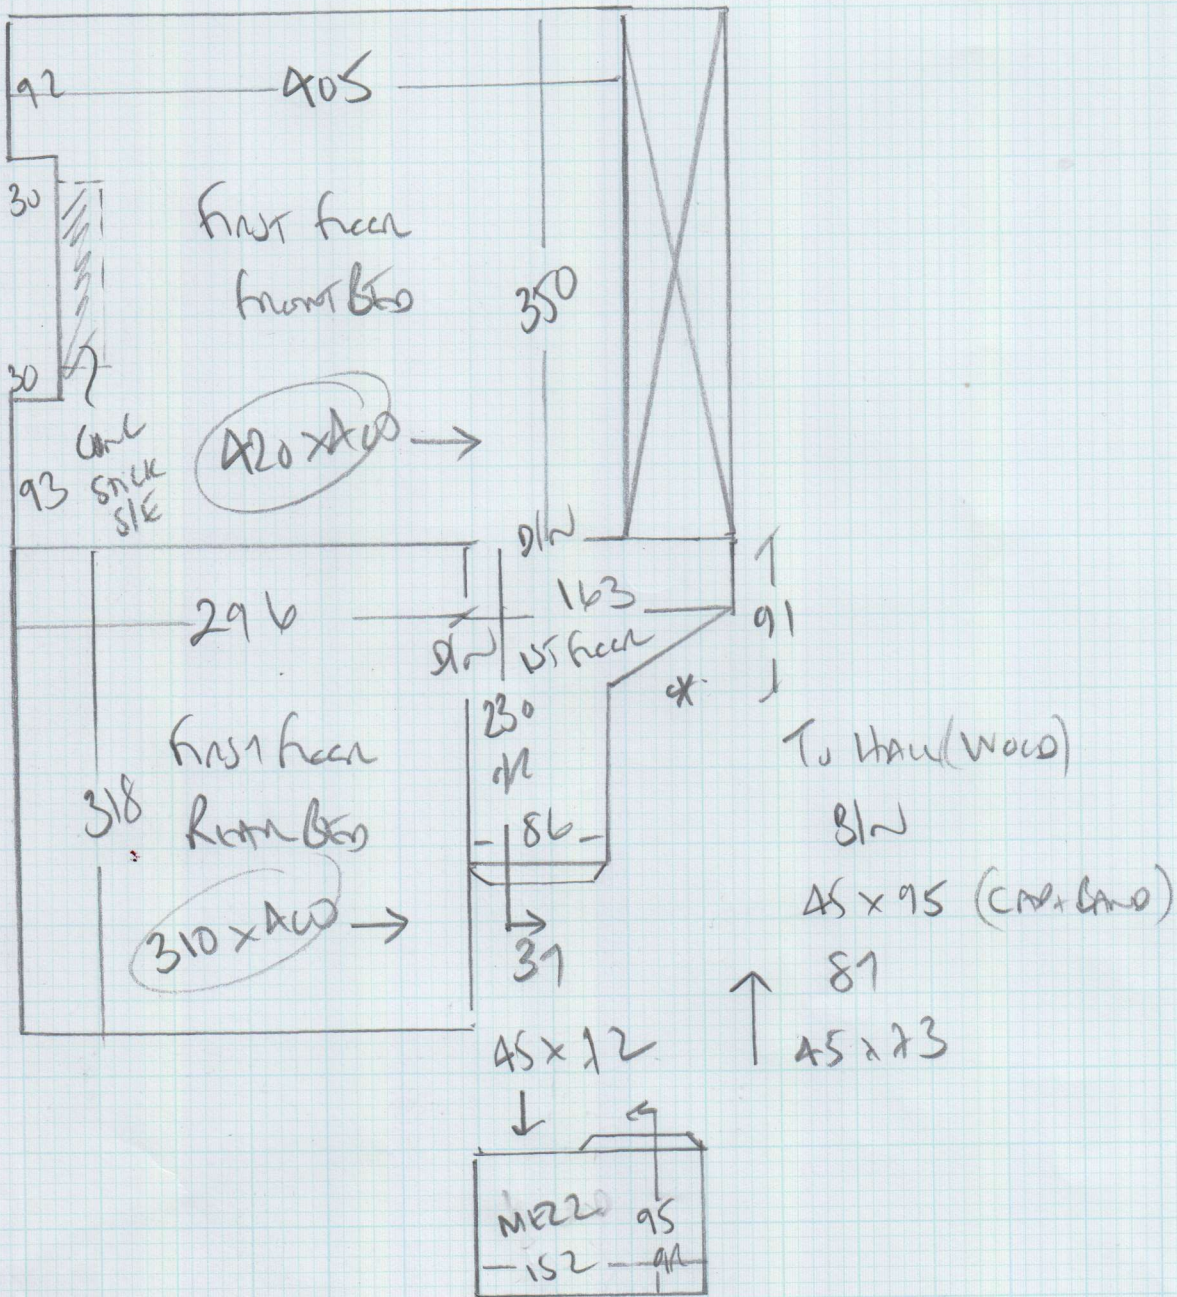 92
405
30
FIRST FLOOR
FRONT BED
350
30
420 x 400
CONC
STICK
S/E
93
D/N
163
91
296
D/N
1ST FLOOR
230
FIRST FLOOR
REAR BED
318
86
310 x 400
31
TO HALL (WOOD)
B/N
45 x 95 (CAP + BAND)
81
45 x 73
45 x 72
MEZZ
95
152